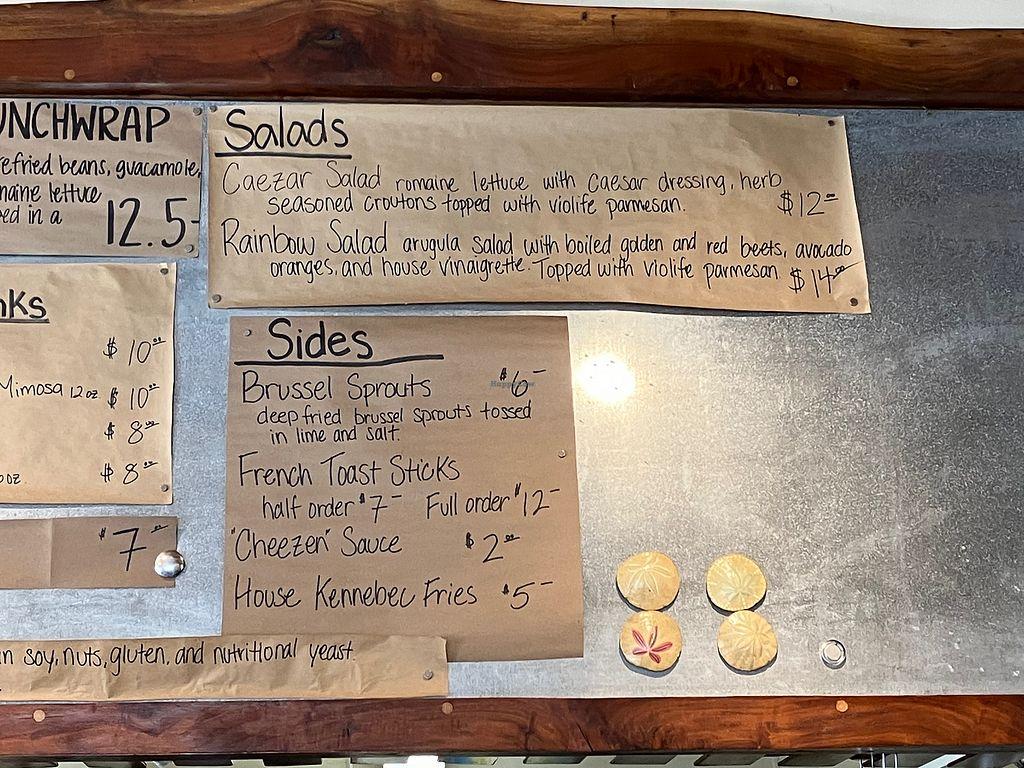 UNCHWRAP
refried beans, guacamole,
maine lettuce
ed in a
12.5-
Salads
Caezar Salad romaine lettuce with caesar dressing, herb
seasoned croutons topped with violife parmesan. $12-
Rainbow Salad arugula salad with boiled golden and red beets, avocado
oranges, and house vinaigrette. Topped with violife parmesan $14⁰⁰
nks
$10⁰⁰
Mimosa 12oz $10⁰⁰
$8⁰⁰
oz $8⁰⁰
$7⁰⁰
Sides
Brussel Sprouts $6-
deep fried brussel sprouts tossed
in lime and salt.
French Toast Sticks
half order $7- Full order $12-
"Cheezen" Sauce $2⁰⁰
House Kennebec Fries $5-
n soy, nuts, gluten, and nutritional yeast
HappyCow